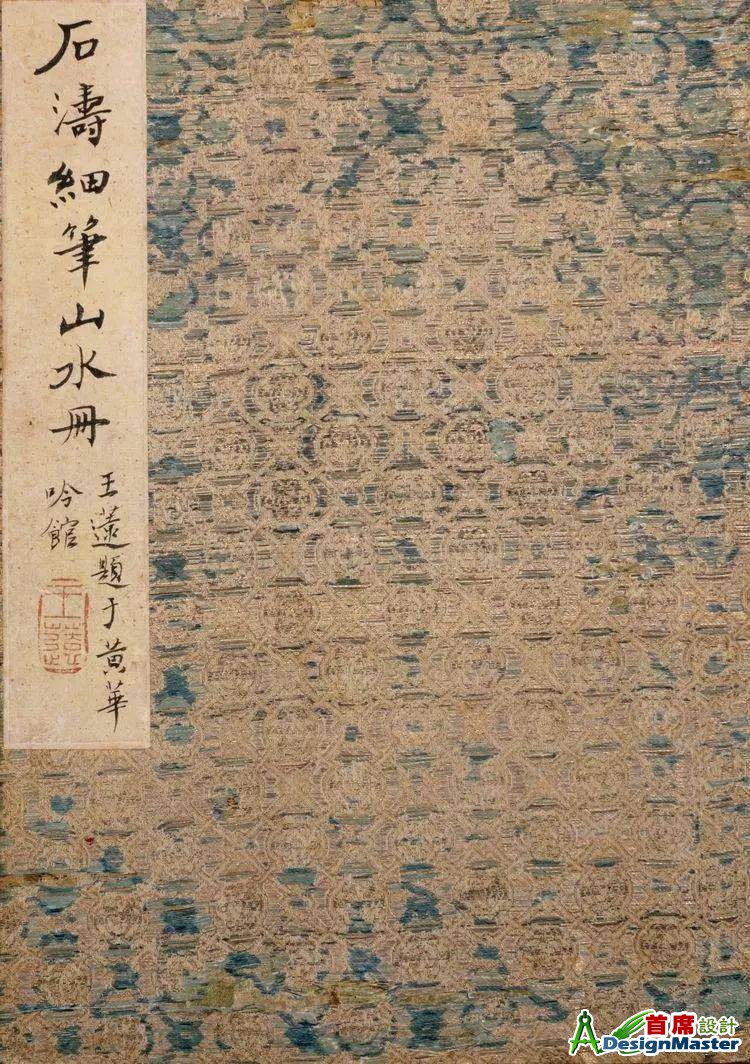 石濤細筆山水冊
王薳題于黃華
吟館
王薳
首席設計
DesignMaster